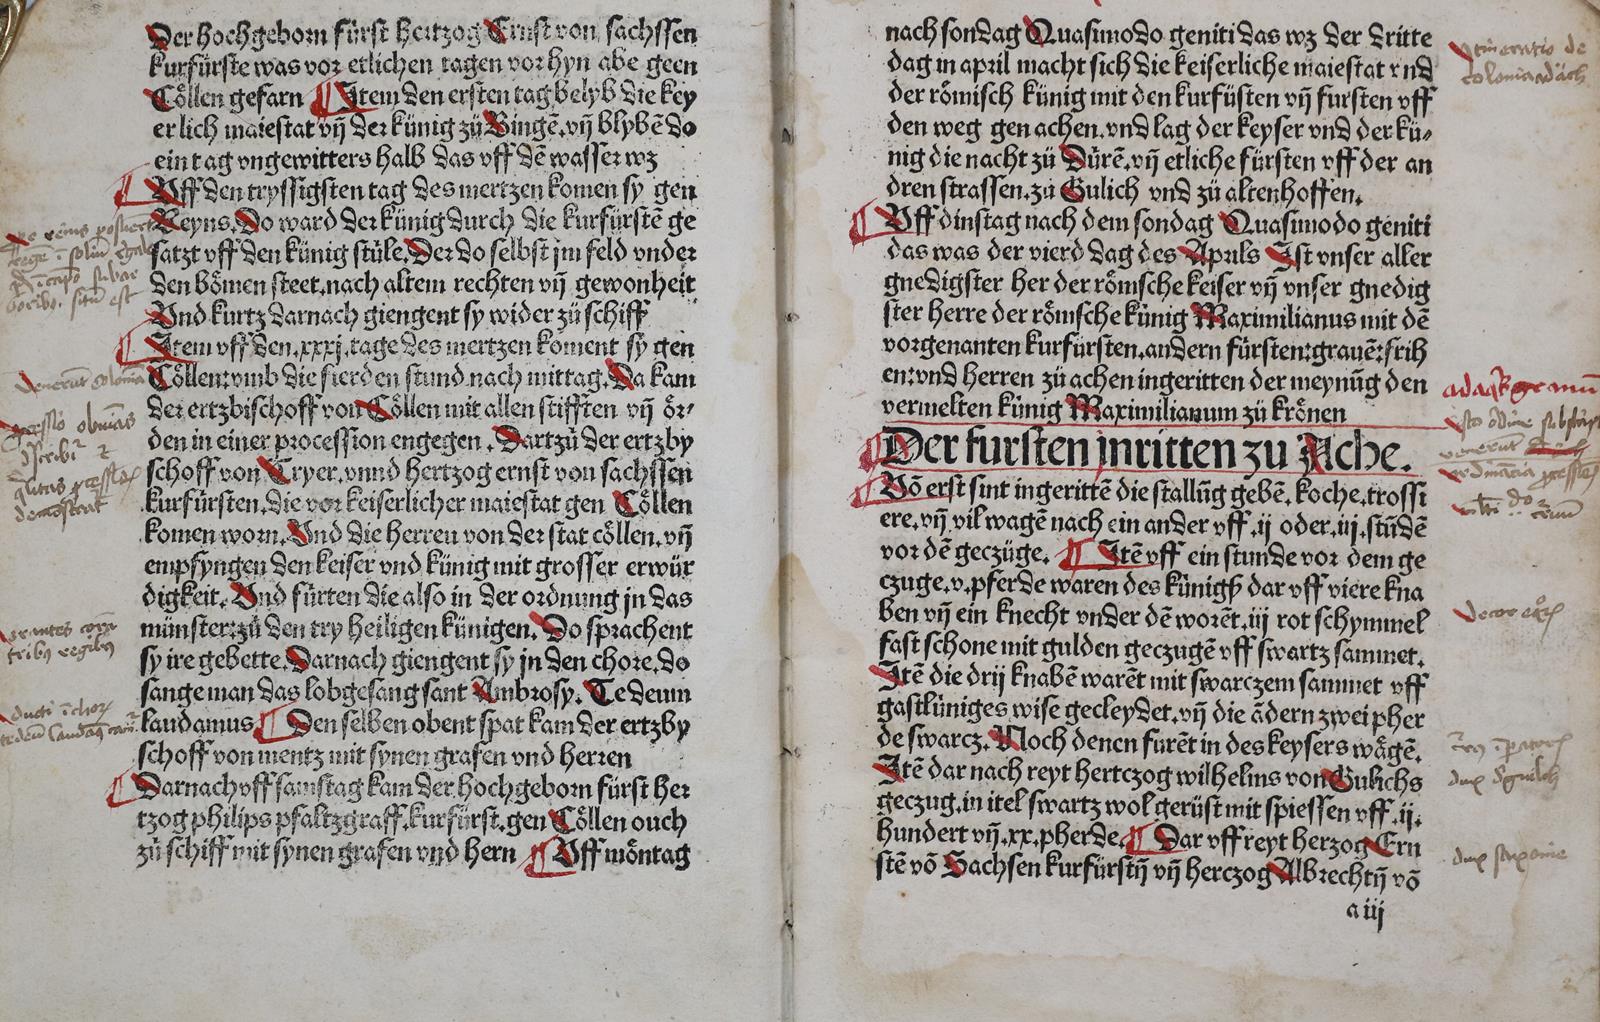 Der hochgeborn fürst hertzog Ernst von sachssen
kurfürste was vor etlichen tagen vor hyn abe geen
Cöllen gefarn ¶ Item den ersten tag belyb die key
erlich maiestat vñ der künig zü Bingē. vñ blybē do
ein tag vngewitters halb das vff dē wasser wz
¶ Vff den tryssigsten tag des mertzen komen sy gen
Reyns. Do ward der künig durch die kurfürstē ge
satzt vff den künig stüle. Der do selbst jm feld vnder
den bömen steet. nach altem rechten vñ gewonheit
Vnd kurtz darnach giengent sy wider zü schiff
¶ Item vff den .xxxj. tage des mertzen koment sy gen
Cöllen: vmb die fierden stund nach mittag. Da kam
der ertzbischoff von Cöllen mit allen stifften vñ ör⸗
den in einer procession engegen. Dartzü der ertzby
schoff von Tryer. vnnd hertzog ernst von sachssen
kurfürsten. die vor keiserlicher maiestat gen Cöllen
komen worn. Vnd die herren von der stat cöllen. vñ
empfyngen den keiser vnd künig mit grosser erwür
digkeit. Vnd fürten die also in der ordnung jn das
münster: zü den try heiligen künigen. Do sprachent
sy ire gebette. Darnach giengent sy jn den chore. do
sange man das lobgesang sant Ambrosy. Te deum
laudamus ¶ Den selben obent spat kam der ertzby
schoff von mentz mit synen grafen vnd herren
¶ Darnach vff samstag kam der hochgeborn fürst her
tzog philips pfaltzgraff. kurfürst. gen Cöllen ouch
zü schiff mit synen grafen vnd hern ¶ Vff möntag
venerunt
nach sondag Quasimodo geniti das wz der dritte
dag in april macht sich die keiserliche maiestat vnd
der römisch künig mit den kurfüsten vñ fursten vff
den weg gen achen. vnd lag der keyser vnd der kü⸗
nig die nacht zü Dürē. vñ etliche fürsten vff der an
dren strassen. zü Gulich vnd zü altenhoffen.
¶ Vff dinstag nach dem sondag Quasimodo geniti
das was der vierd dag des Aprils Ist vnser aller
gnedigster her der römsche keiser vñ vnser gnedig
ster herre der römsche künig Maximilianus mit dē
vorgenanten kurfürsten. andern fürsten: grauē: frih
en: vnd herren zü achen ingeritten der meynūg den
vermelten künig Maximilianum zü krönen
¶ Der fursten jnritten zu Ache.
¶ Vō erst sint ingerittē die stallūg gebē. koche. trossi
ere. vñ vil wagē nach ein ander vff .ij oder .iij. stūdē
vor dē geczüge. ¶ Itē vff ein stunde vor dem ge
czuge. v. pferde waren des künigß dar vff viere kna
ben vñ ein knecht vnder dē worēt. iij rot schymmel
fast schone mit gulden geczugē vff swartz sammet.
Itē die drij knabē warēt mit swarczem sammet vff
gastlüniges wise gecleydet. vñ die ādern zwei pher
de swarcz. Noch denen furēt in des keysers wägē.
Itē dar nach reyt hertczog wilhelms von Gulichs
geczug. in itel swartz wol gerüst mit spiessen vff .ij.
hundert vñ .xx. pherde. ¶ Dar vff reyt herzog Ern
stē vō Sachsen kurfürstñ vñ herczog Albrechtñ vō
a iij
Itineratio de
dux saxonie